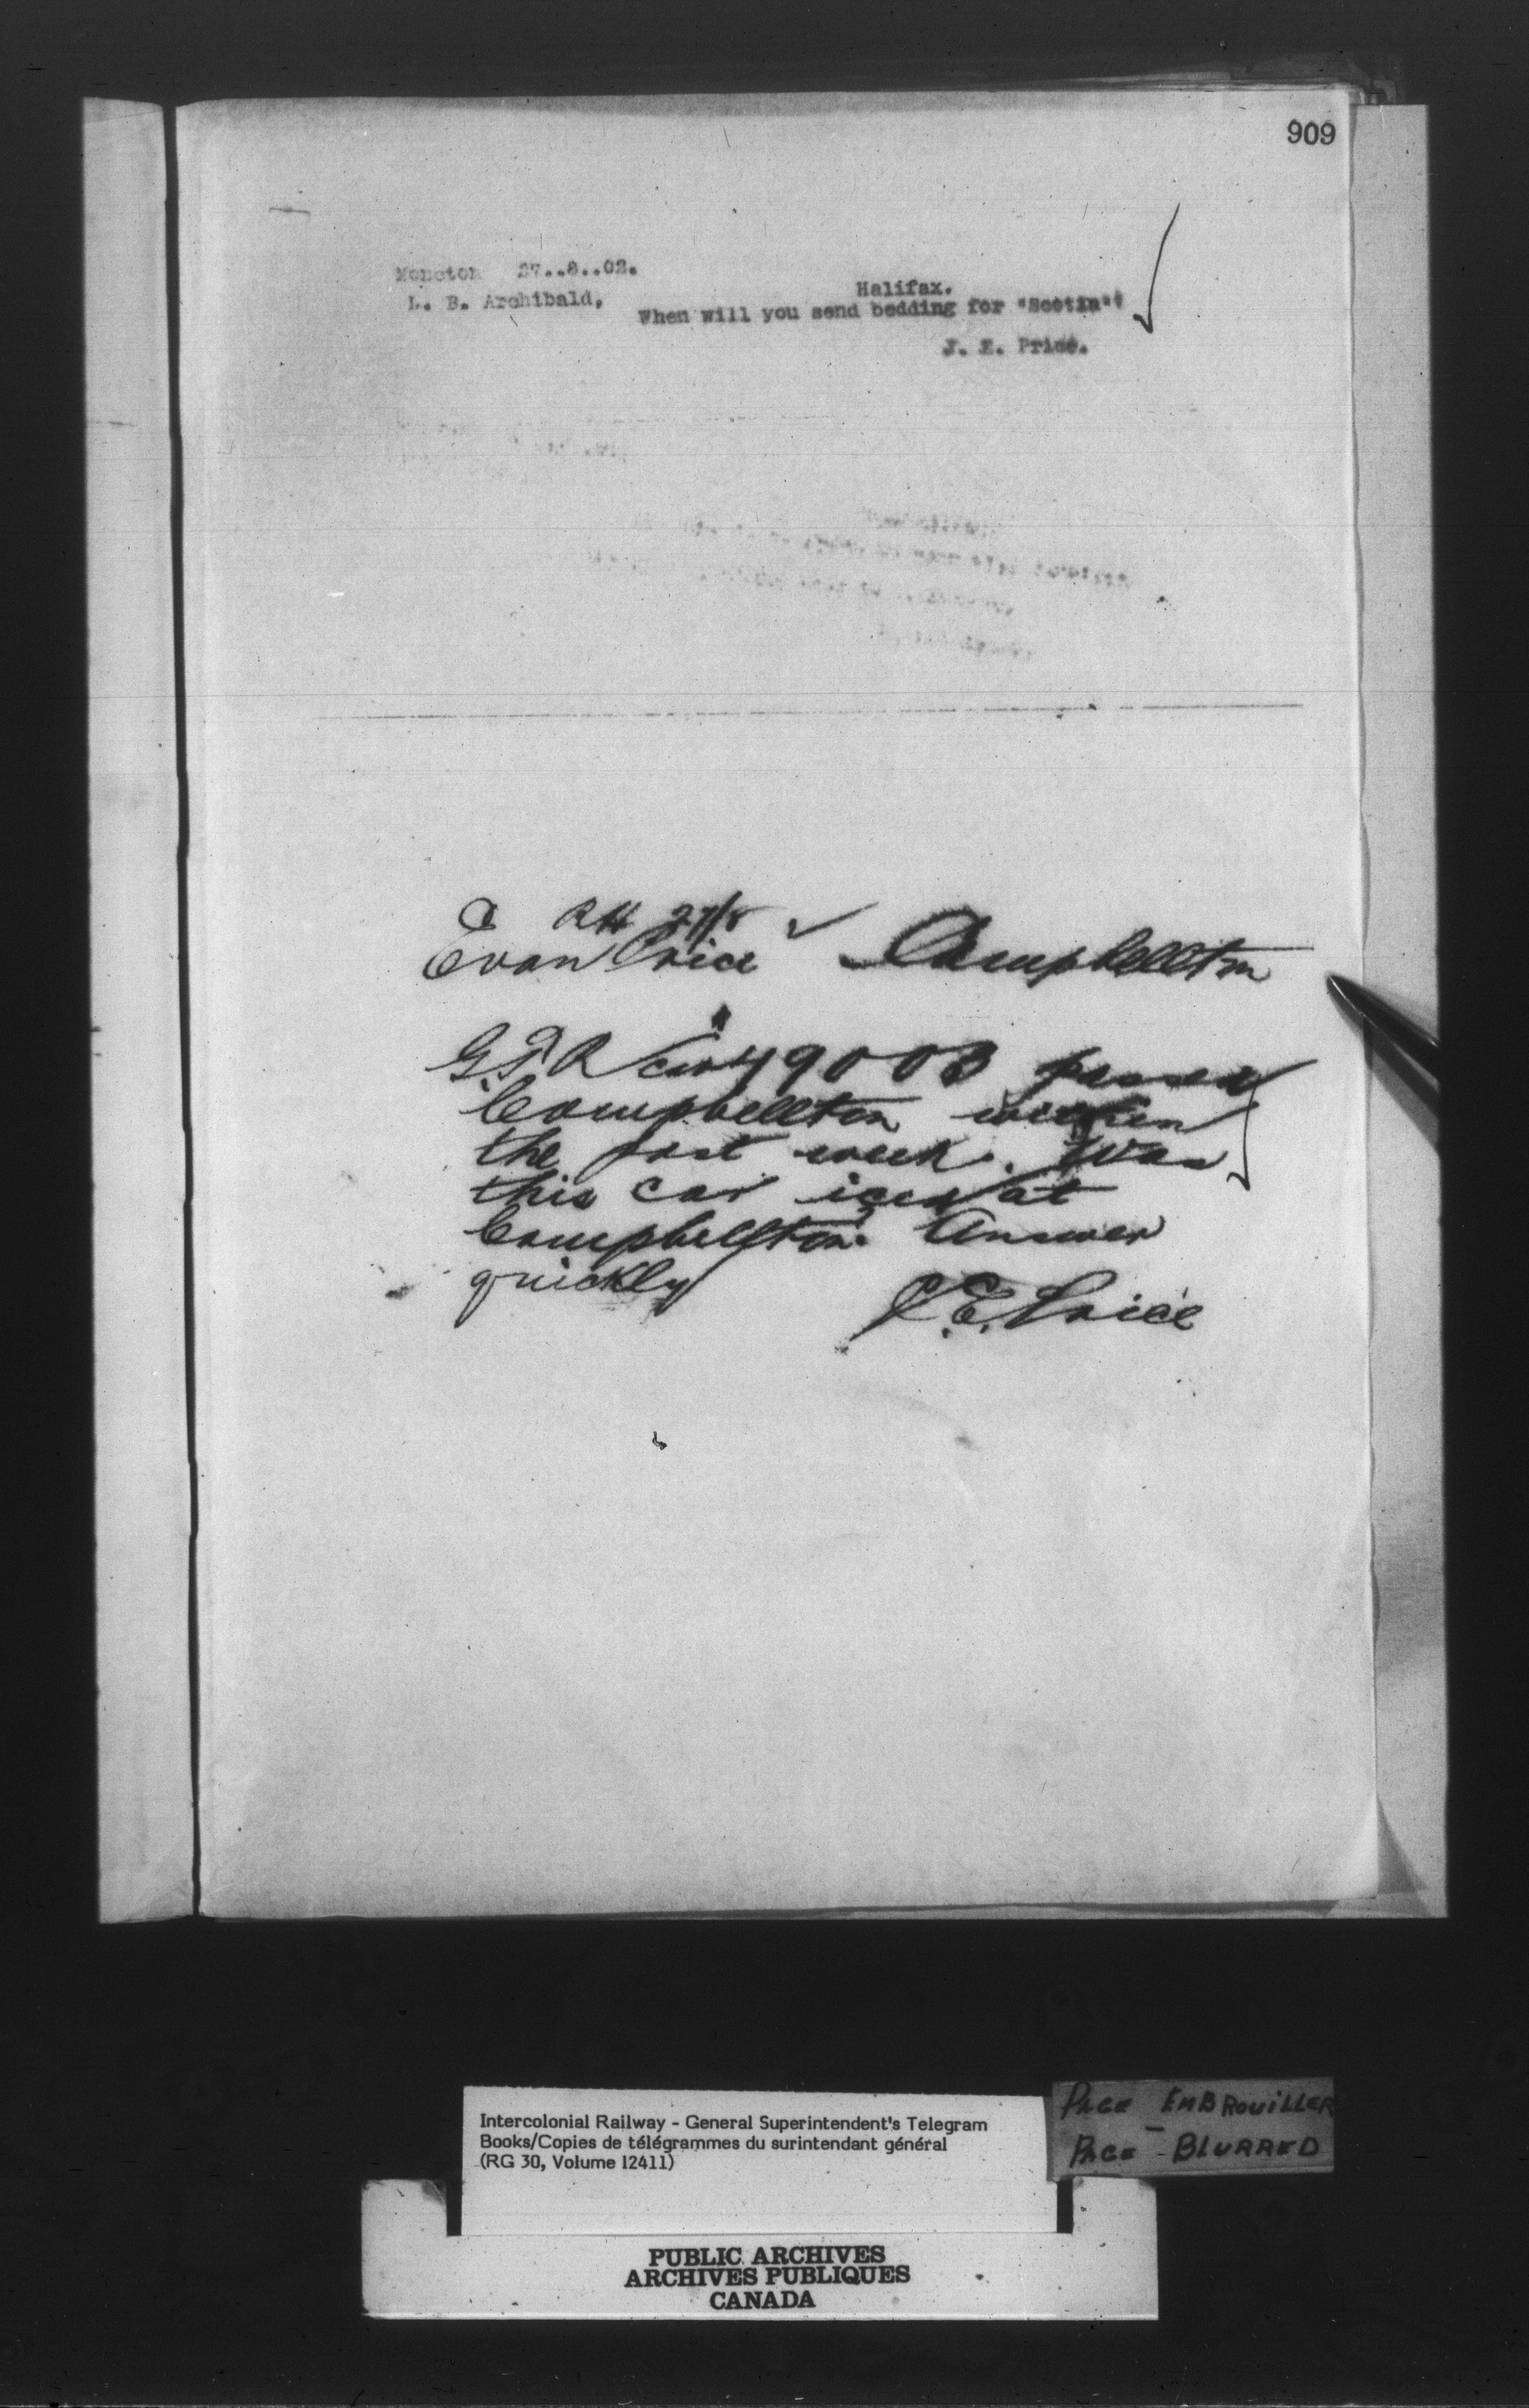 909
Moncton 27..8..02.
L. B. Archibald,
Halifax.
When will you send bedding for "Scotia"?
J. E. Price.
RH 27/8
Evan Price Campbellton
G.T.R car 49003 passed
Campbellton within
the past week. Was
this car iced at
Campbellton? Answer
quickly
J.E. Price
Intercolonial Railway - General Superintendent's Telegram
Books/Copies de télégrammes du surintendant général
(RG 30, Volume 12411)
PAGE EMBROUILLER
PAGE - BLURRED
PUBLIC ARCHIVES
ARCHIVES PUBLIQUES
CANADA